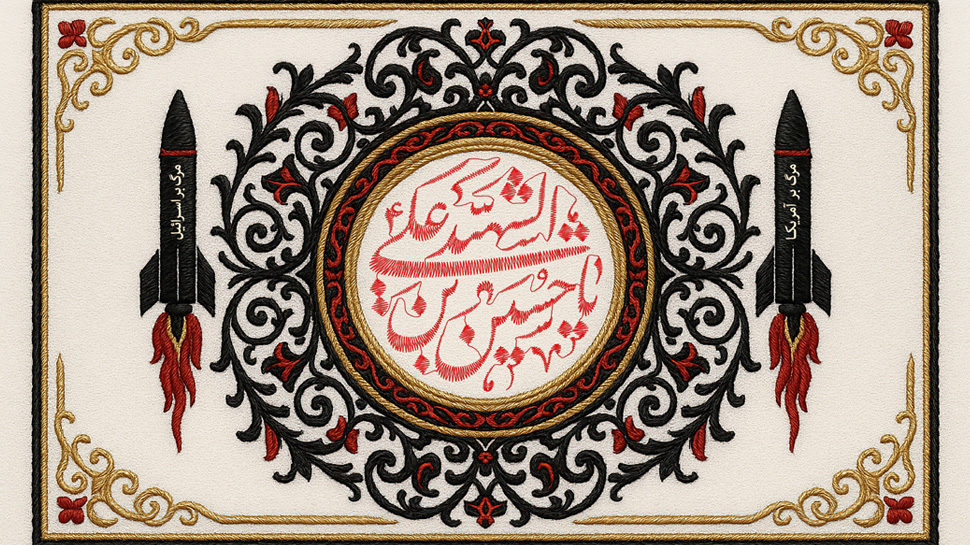 مرگ بر آمریکا
یا حسین بن
علی الشهید
مرگ بر اسرائیل